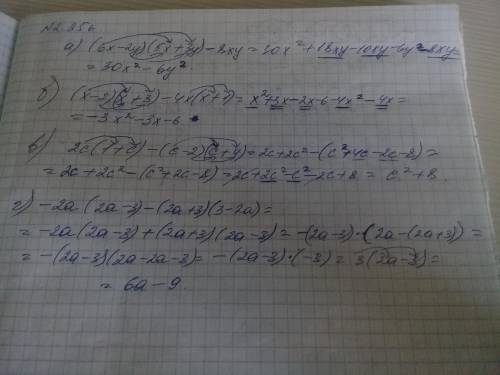 №2.356
а) (6x-2y)(5x+3y)-8xy=30x²+18xy-10xy-6y²-8xy=
=30x²-6y².
б) (x-2)(x+3)-4x(x+1)=x²+3x-2x-6-4x²-4x=
=-3x²-3x-6.
в) 2c(1+c)-(c-2)(c+4)=2c+2c²-(c²+4c-2c-8)=
=2c+2c²-(c²+2c-8)=2c+2c²-c²-2c+8=c²+8.
г) -2a(2a-3)-(2a+3)(3-2a)=
=-2a(2a-3)+(2a+3)(2a-3)=-(2a-3)·(2a-(2a+3))=
=-(2a-3)(2a-2a-3)=-(2a-3)·(-3)=3(2a-3)=
=6a-9.